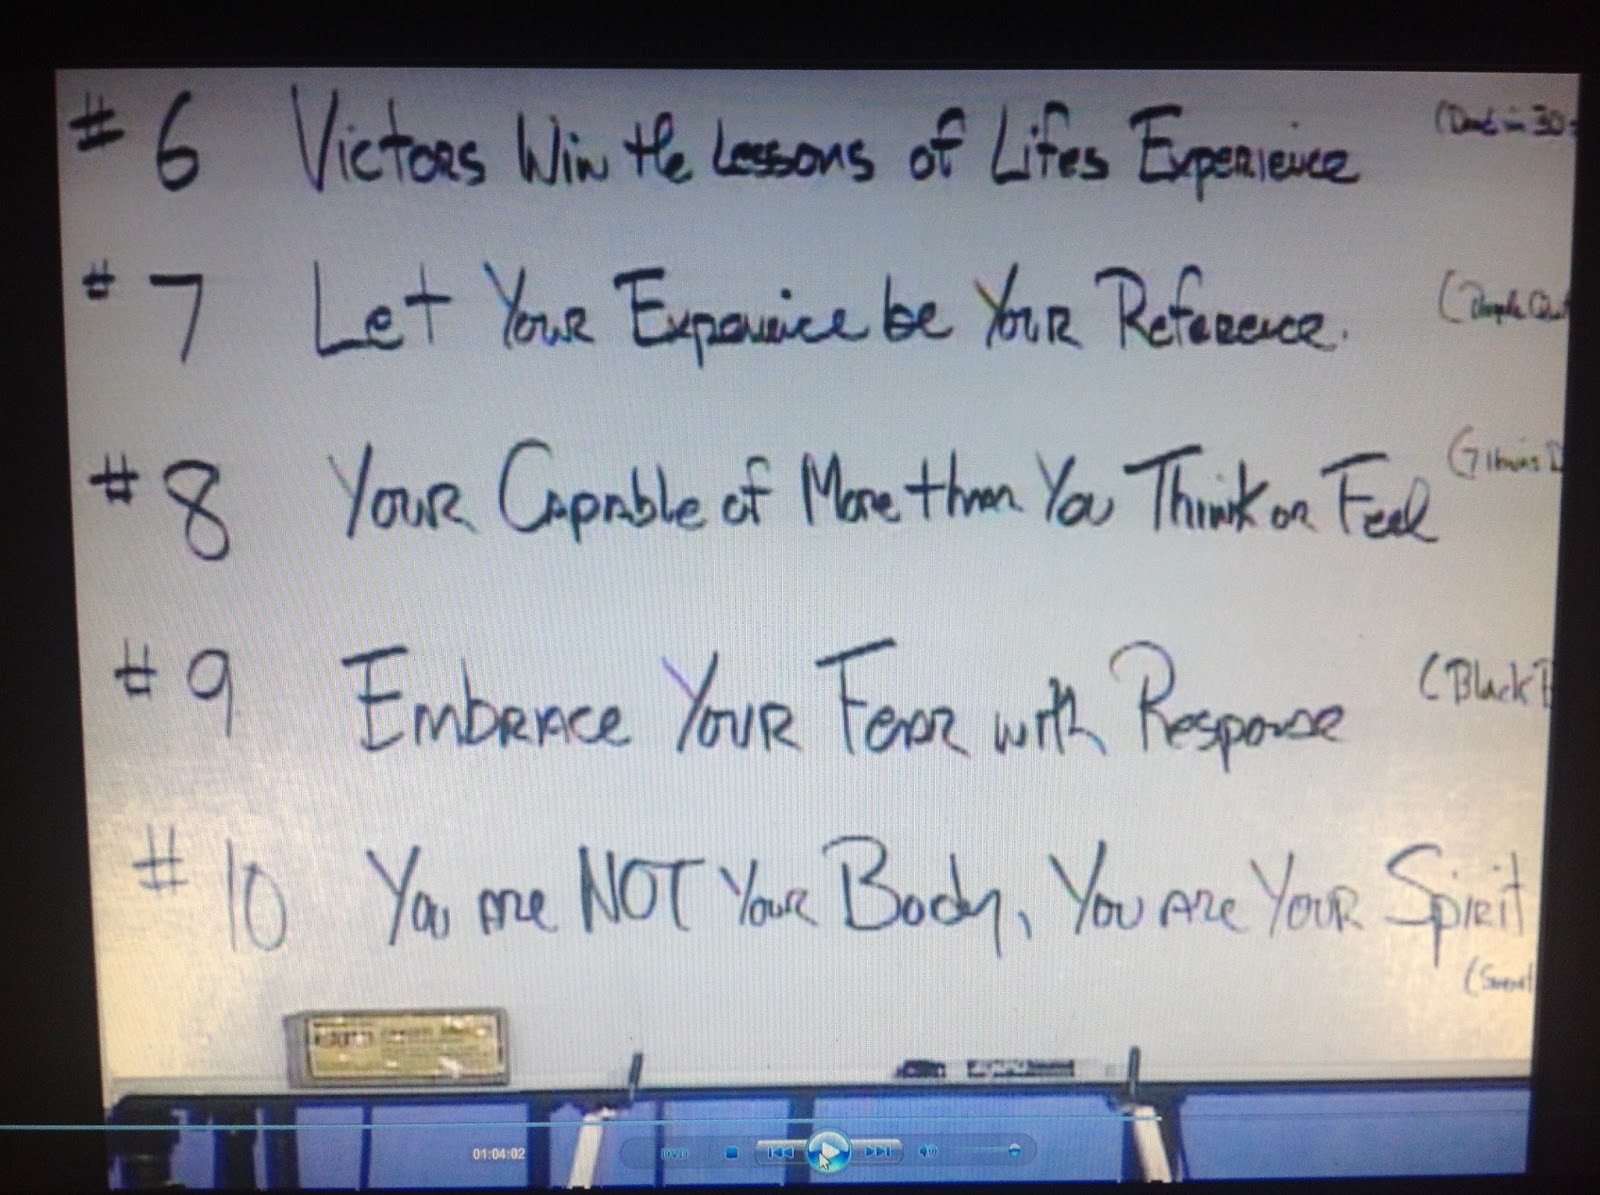 #6 Victors Win the Lessons of Lifes Experience
#7 Let Your Experience be Your Reference.
#8 Your Capable of More than You Think or Feel
#9 Embrace Your Fear with Response (Black
#10 You are NOT Your Body, You are Your Spirit
01:04:02 DVD